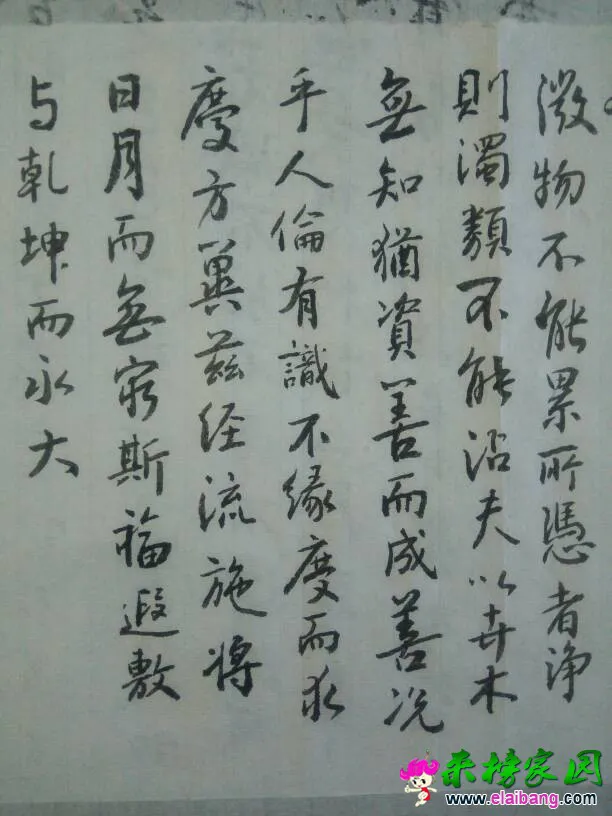 微物不能累所憑者浄
則濁類不能沾夫以卉木
無知猶資善而成善况
乎人倫有識不緣慶而求
慶方冀茲经流施將
日月而無窮斯福遐敷
与乾坤而永大
来榜家园
www.elaibang.com